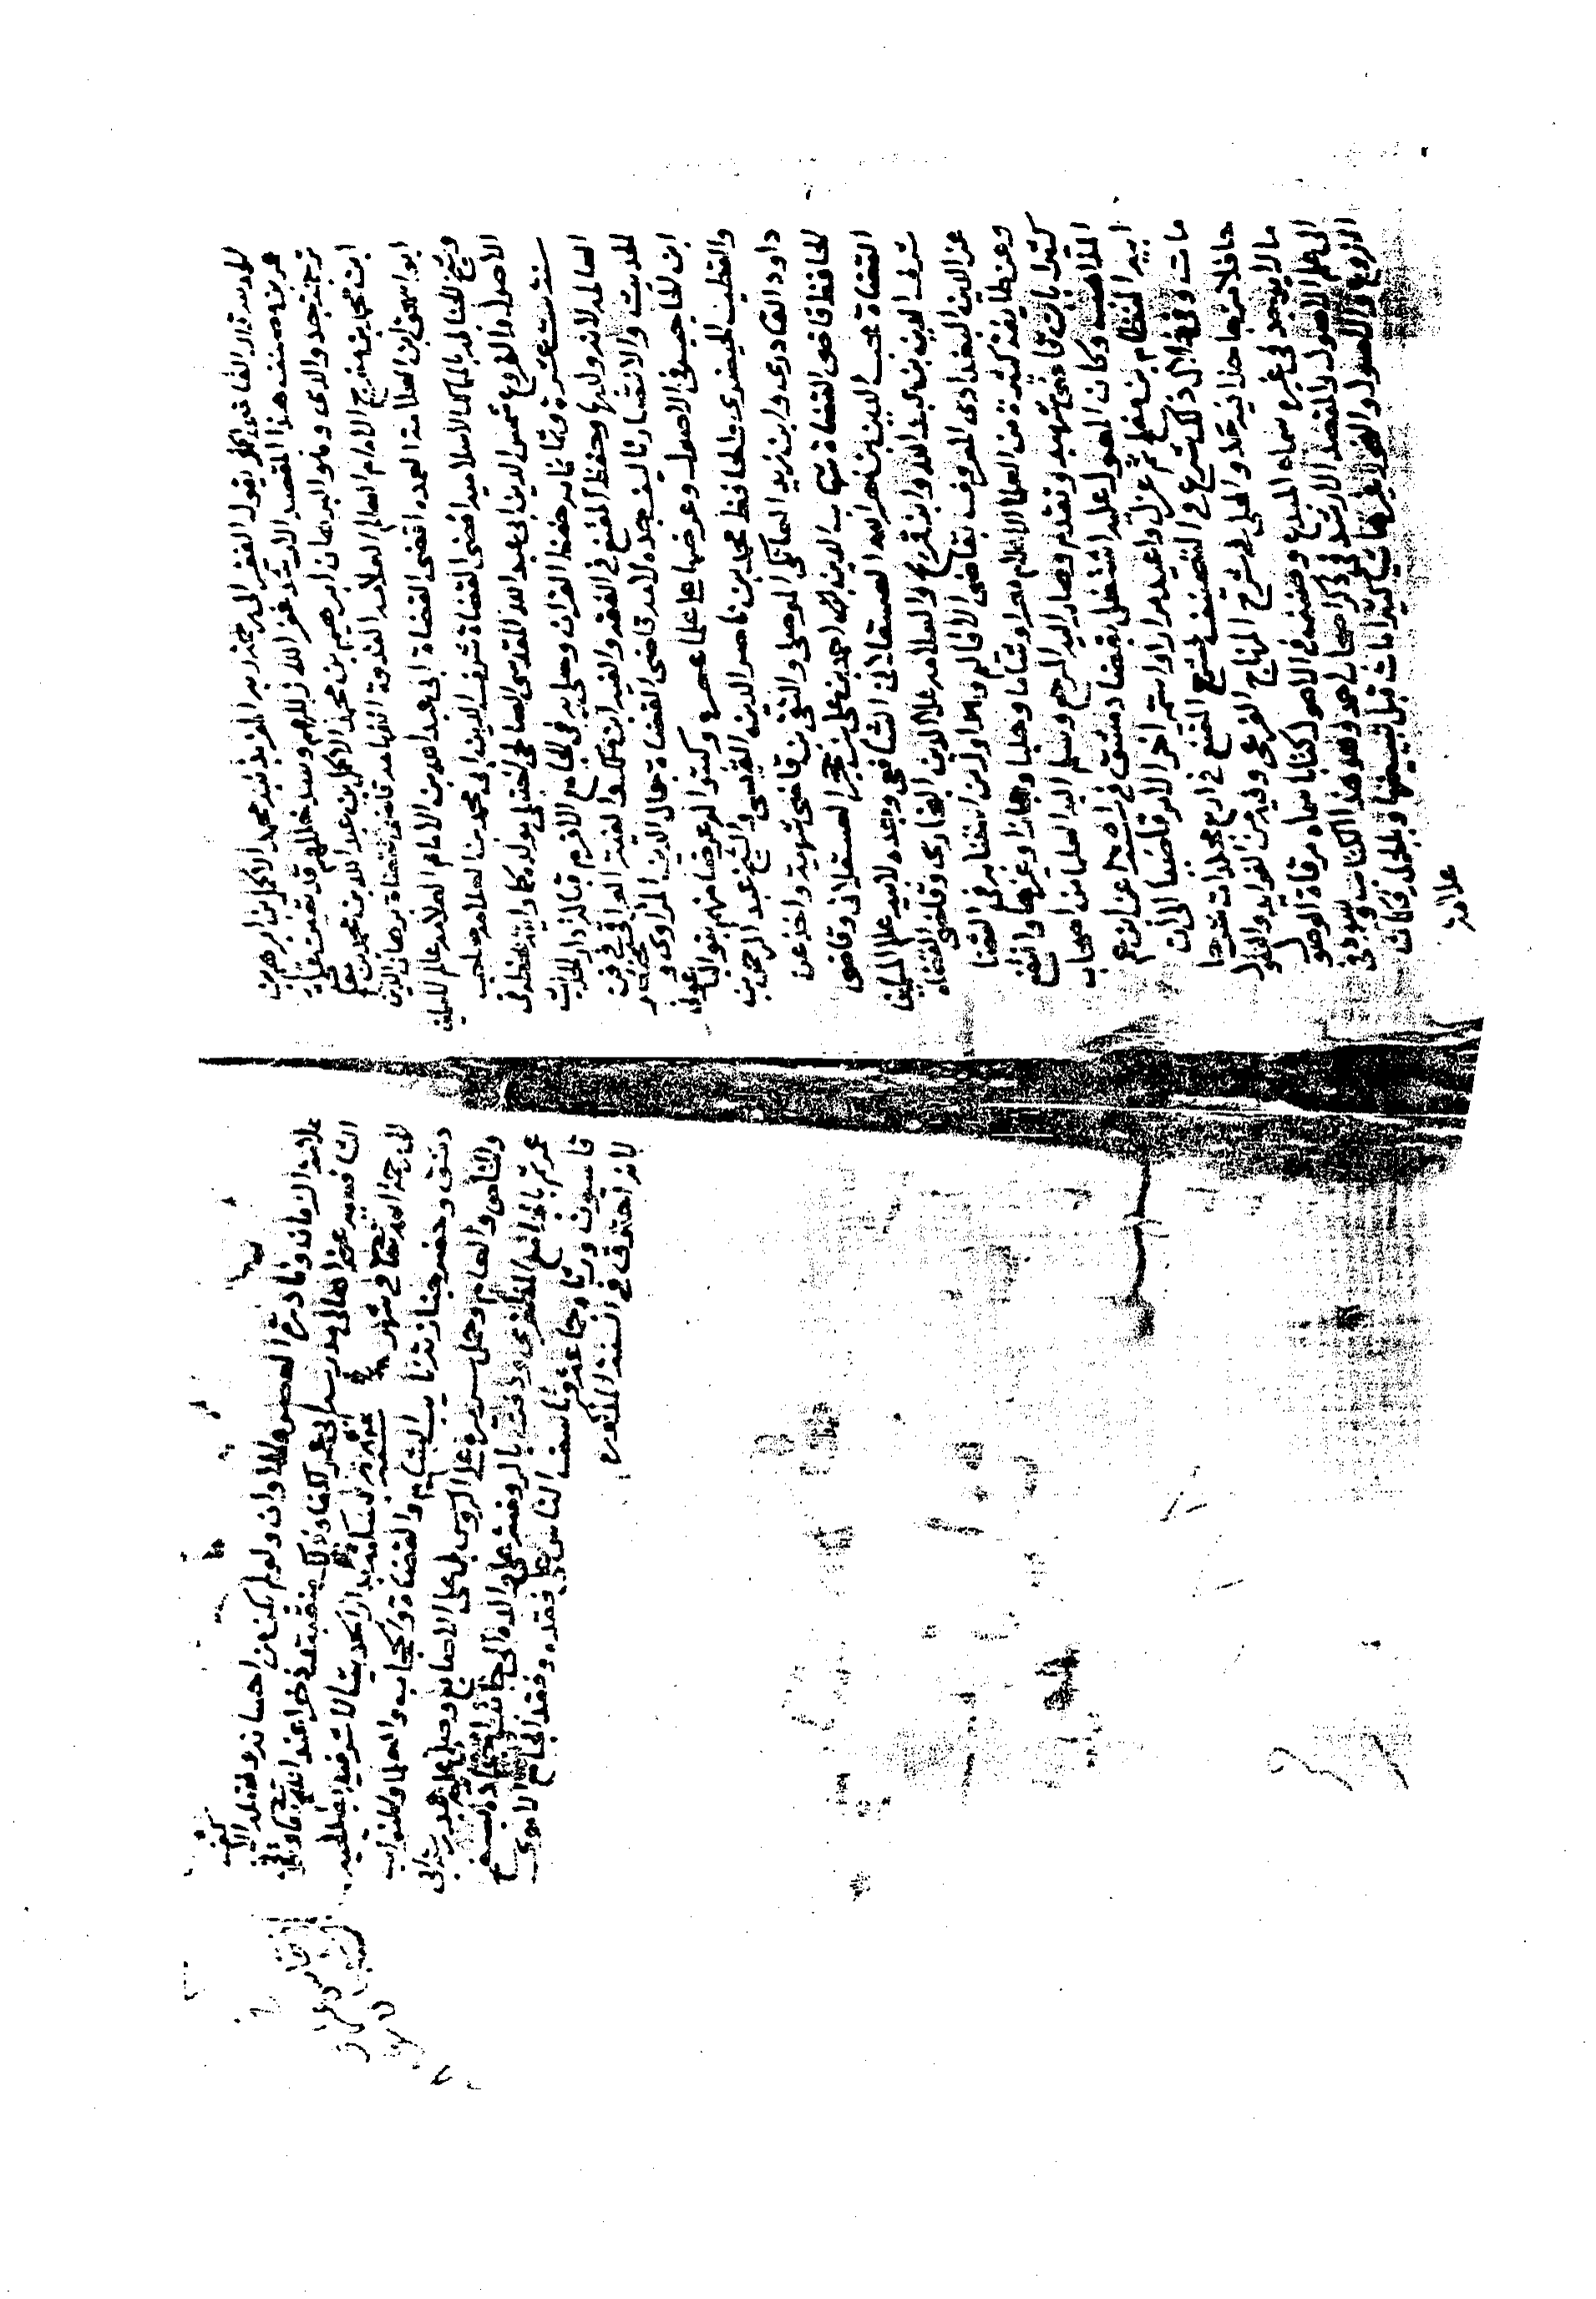 يقول الفقير الى رحمة ربه المزيد بمنه محمد الاكمل بن ابرهيم بن
عمر بن هذا المقصد الارشد غفر الله زللهم وسد خللهم قد بقيت عليه
ترجمة جد والدي وهو البرهان ابرهيم بن محمد الاكمل بن عبد الله بن محمد بن مفلح
ابن محمد بن مفرج الامام العالم العلامه القدوة الفهامه قاضي القضاة برهان الدين
ابو اسحق ابن العلامة العمده اقضى القضاة ابي عبد الله بن الامام العلامه عالم المسلمين
وشيخ الحنابله بالممالك الاسلاميه اقضى القضاة شرف الدين ابي محمد بن العلامه صاحب
الاصول والفروع شمس الدين ابي عبد الله المقدسي الصالحي الحنبلي مولده كما رايته بخطه في
سنة ست عشرة وثمانمايه حفظ القران وصلى به في الجامع الافرم قبالة دار الحديث
العالمه لانه ولد بها وحفظ المقنع في الفقه والفية ابن ملك والفية العراقي في فن
الحديث والانتصار تاليف جده لامه قاضي القضاة جمال الدين المرداوي ومختصر
ابن الحاجب في الاصول وعرضها على علما عصره وكتبوا له عرضا منهم
والقطب الخيضري والحافظ محمد بن ناصر الدين القيسي والشيخ عبد الرحمن بن
داود القادري وابن زيد العاتكي الموصلي والتقي بن قاضي شهبة واخذ عن
الحافظ قاضي القضاة شهاب الدين احمد بن علي بن حجر العسقلاني وقاضي
القضاة محب الدين بن نصر الله العسقلاني الشافعي وجده لابيه علم المسلمين
شرف الدين بن عبد الله وابن والعلامه علا الدين البخاري وقاضي القضاه
عز الدين البغدادي المعروف بقاضي الاقاليم وهو اول من استنابه في القضا
وعن طايفة كثيرة من العلما الاعلام مصرا وشاما وحلبا وحجازا وغيرها وانتفع
كثيرا بابن قاضي شهبه وتقدم وصار اليه المرجع وسلم اليه العلما من اصحاب
المذاهب وكان المعول عليه اشتغل بقضا دمشق في سنة عن ابن عم
ابيه النظام بن مفلح ثم عزل واعيد مرارا واستمر اخر الامر قاضيا الى ان
مات وفي خلال ذلك شرع في التصنيف فشرح المقنع في اربع مجلدات شرحا
حافلا مزجا حذا فيه حذو المحلي في شرح المنهاج الفرعي وفيه من الفوايد والنقول
ما لا يوجد في غيره سماه المبدع وصنف في الاصول كتابا سماه مرقاة الوصول
الى علم الاصول والمقصد الارشد في ذكر اصحاب احمد وهو هذا الكتاب
مات قبل تبييضها وبالجملة فكان
علامة
علامة الزمان ونادرة العصر والاوان ولو لم يكن من احسانه
الشافعيه عن اهالي مدرسة ابي عمر لكفاه ذلك منقبة وذخرا عند الله
الى رحمة الله تعالى في شهر بدار الحديث الاشرفيه
دمشق وحضر جنازته نايب الشام والقضاة والحجاب والعلما والنواب
والخاص والعام وحمل سريره على الروس بل على الاصابع وصلي عليه
عمر ثم بالجامع المظفري ودفن بالروضة على والده الى جانب
قاسيون وتاسف الناس على فقده وفقد الجامع الاموي
لانه احترق في السنة المذكوره